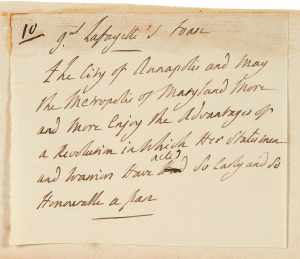 10
gnl Lafayette's Toast
the City of Annapolis and May
the Metropolis of Maryland More
and More Enjoy the Advantages of
a Revolution in Which Her Statesmen
and Warriors Have acted So Early and So
Honorable a part